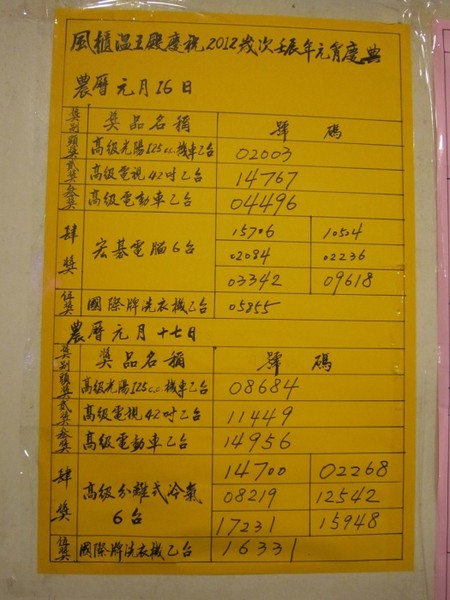 風櫃溫王殿慶祝2012歲次壬辰年元宵慶典
農曆元月16日
獎別 獎品名稱 號碼
頭獎 高級光陽125cc機車乙台 02003
貳獎 高級電視42吋乙台 14767
叁獎 高級電動車乙台 04496
肆獎 宏基電腦6台 15706 10504
02084 02236
03342 09618
伍獎 國際牌洗衣機乙台 05855
農曆元月十七日
獎別 獎品名稱 號碼
頭獎 高級光陽125cc機車乙台 08684
貳獎 高級電視42吋乙台 11449
叁獎 高級電動車乙台 14956
肆獎 高級分離式冷氣6台 14700 02268
08219 12542
17231 15948
伍獎 國際牌洗衣機乙台 16331